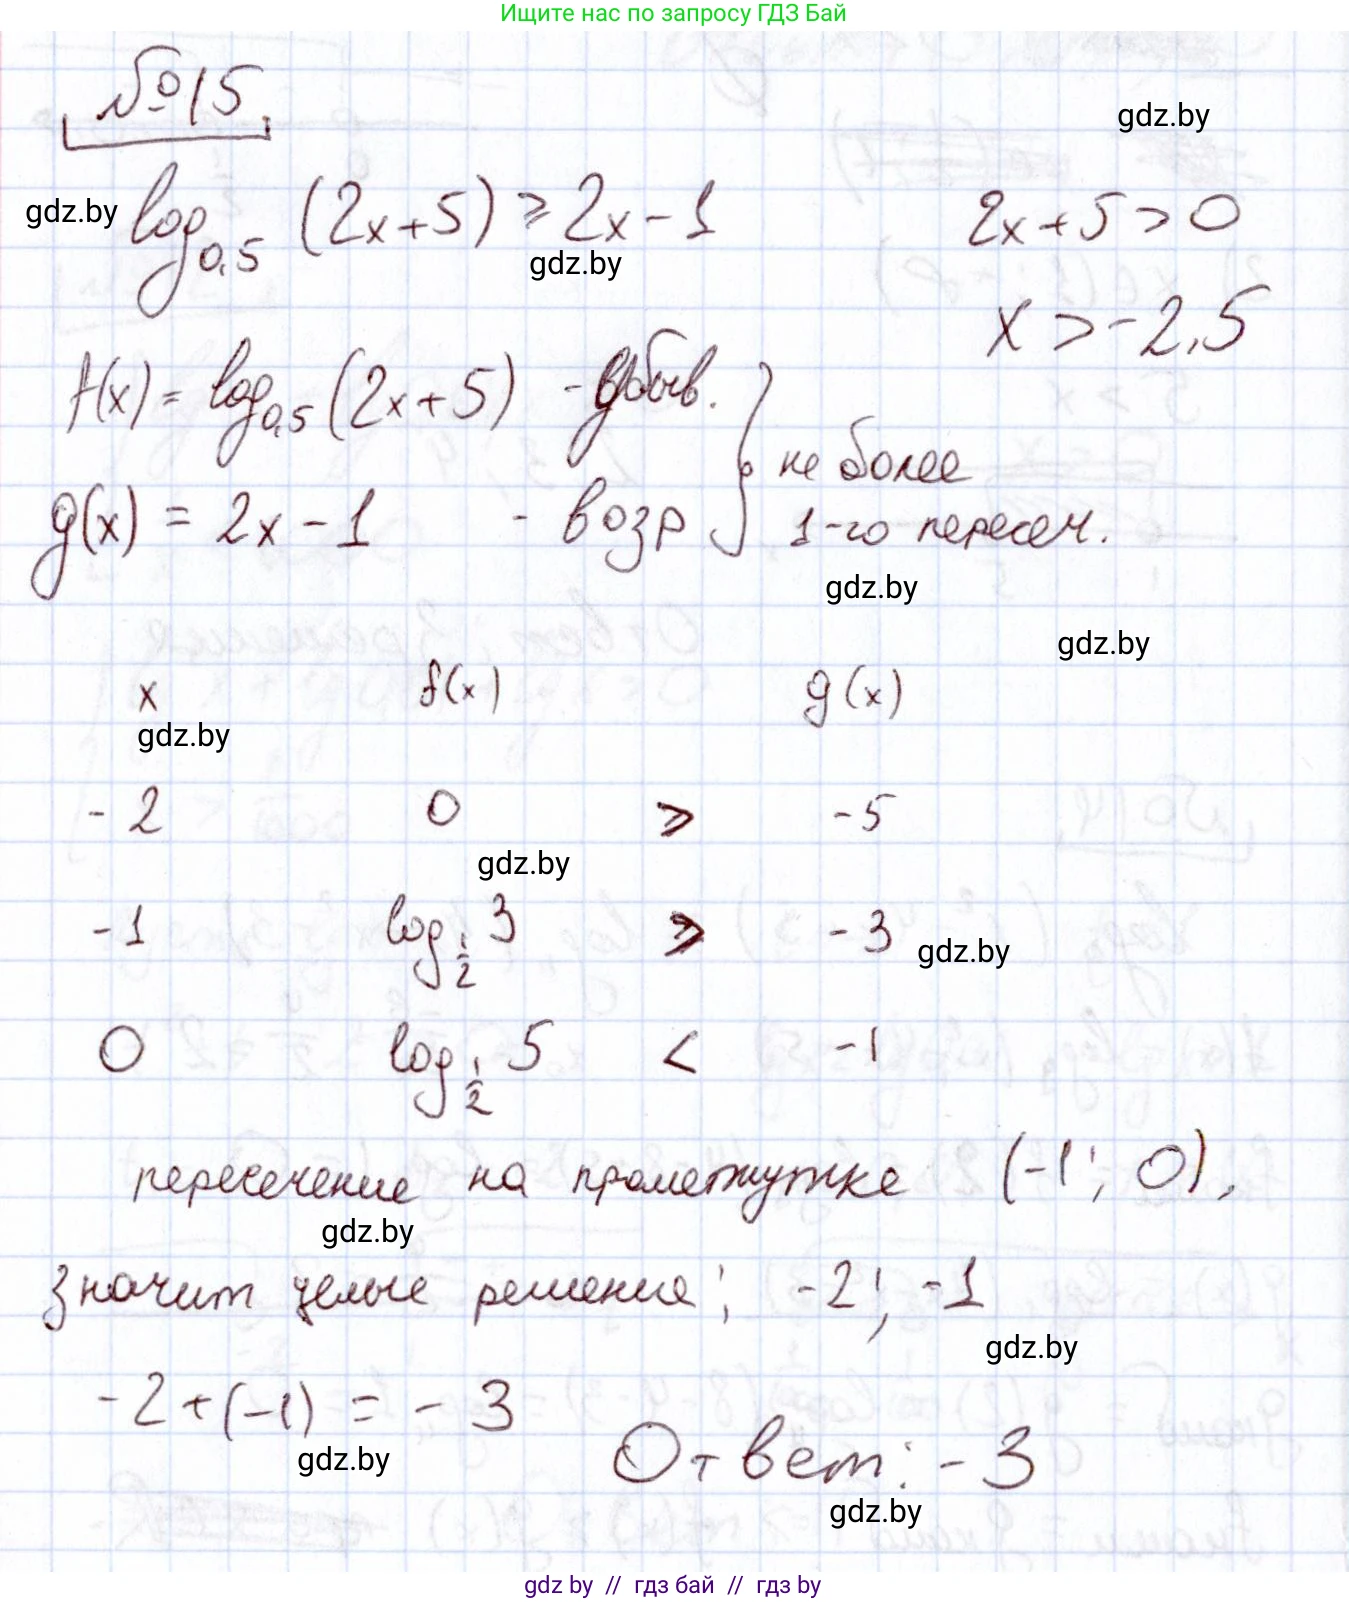 Ищите нас по запросу ГДЗ Бай
№15
gdz.by
gdz.by
log₀,₅ (2x+5) ⩾ 2x-1
2x+5>0
gdz.by
x > -2,5
f(x) = log₀,₅ (2x+5) - убыв.
g(x) = 2x-1 - возр
} не более
1-го пересеч.
gdz.by
gdz.by
x f(x) g(x)
gdz.by
-2 0 ⩾ -5
gdz.by
-1 log½ 3 ⩾ -3
gdz.by
0 log½ 5 < -1
пересечение на промежутке (-1; 0),
gdz.by
значит целые решение: -2; -1
gdz.by
-2+(-1) = -3
gdz.by
Ответ: -3
gdz.by
gdz by // гдз бай // гдз by